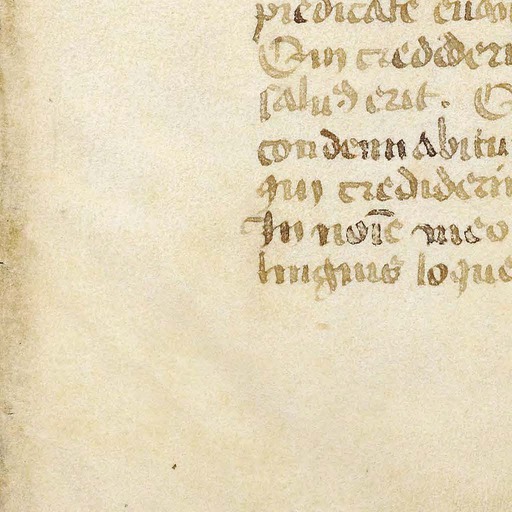 predicate euan
Qui credideri
saluꝰ erit. Q
condennabitu
qui crediderin
In noīe meo
linguis loque